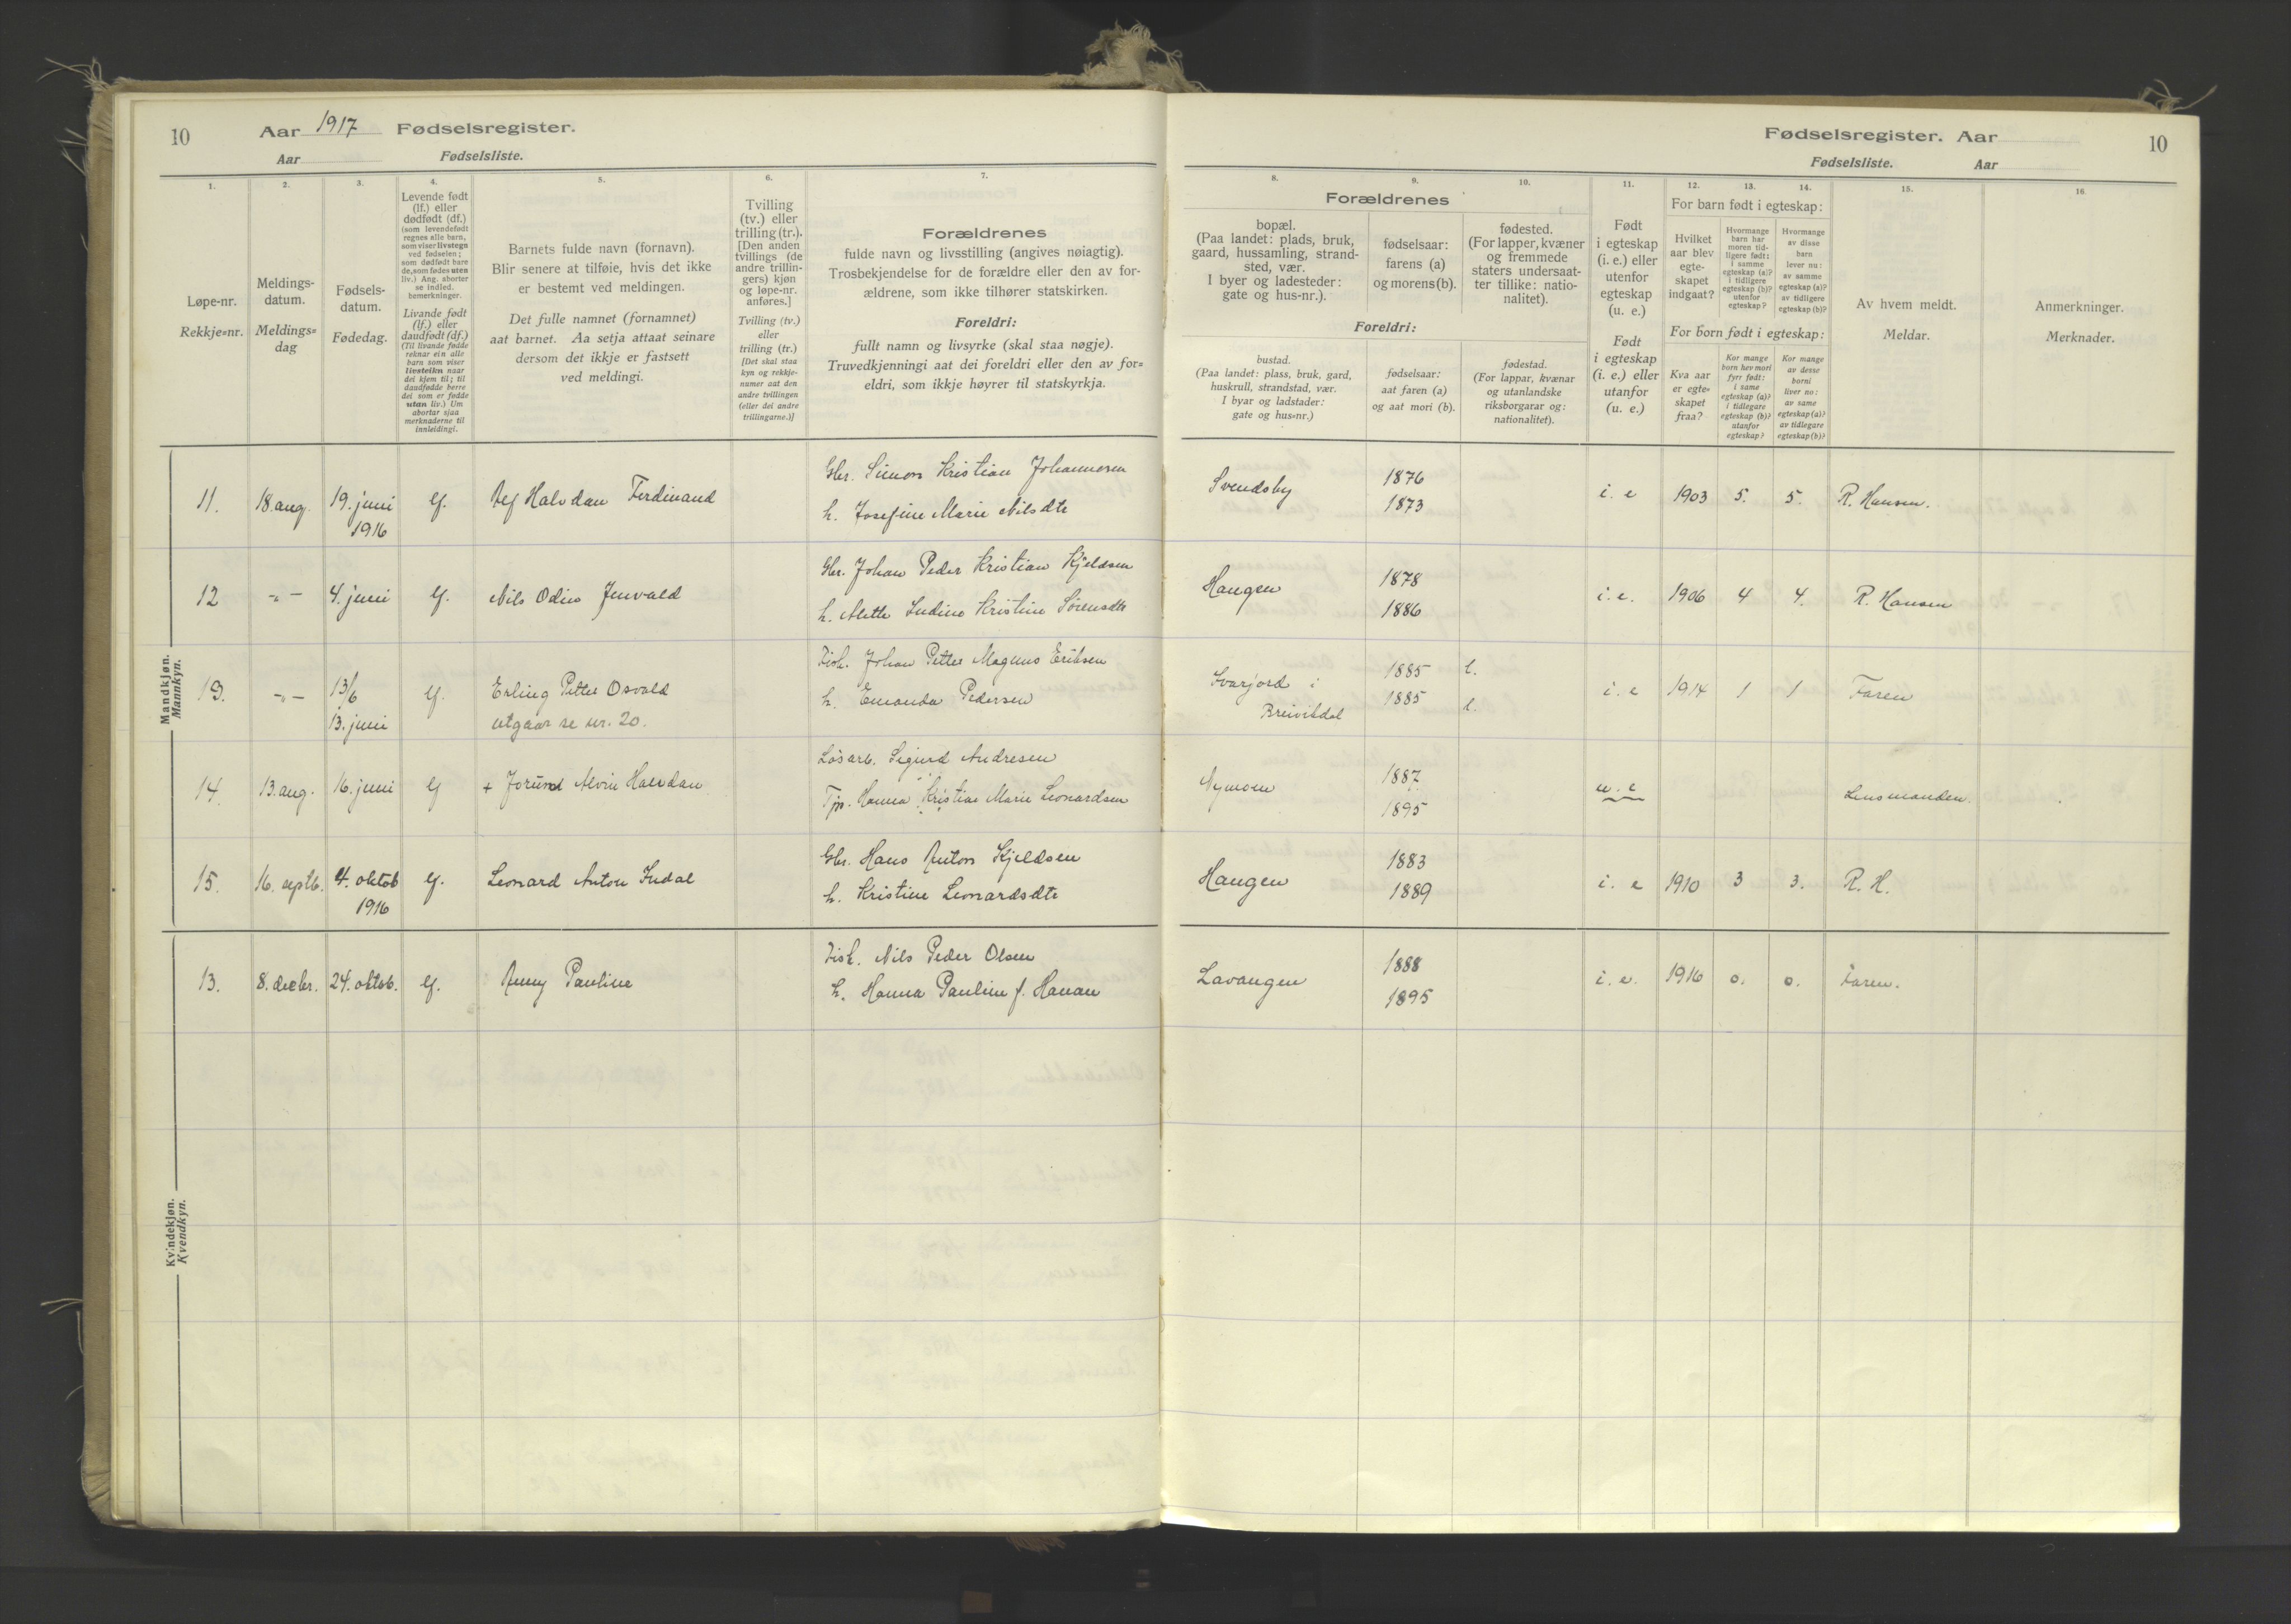 10 Aar 1917 Fødselsregister.
Aar Fødselsliste.
Fødselsregister. Aar 10
Fødselsliste. Aar
1. 2. 3. 4. 5. 6. 7. 8. 9. 10. 11. 12. 13. 14. 15. 16.
Løpe-nr.
Rekkje=nr.
Meldings-
datum.
Meldings=
dag
Fødsels-
datum.
Fødedag.
Levende født
(lf.) eller
dødfødt (df.)
(som levendefødt
regnes alle barn,
som viser livstegn
ved fødselen;
som dødfødt bare
de, som fødes uten
liv.) Ang. aborter
se indled.
bemerkninger.
Livande født
(lf.) eller
daudfødt (df.)
(Til livande fødde
reknar ein alle
barn som viser
livsteikn naar
dei kjem til; til
daudfødde berre
dei som er fødde
utan liv.) Um
abortar sjaa
merknaderne til
innleidingi.
Barnets fulde navn (fornavn).
Blir senere at tilføie, hvis det ikke
er bestemt ved meldingen.
Det fulle namnet (fornamnet)
aat barnet. Aa setja attaat seinare
dersom det ikkje er fastsett
ved meldingi.
Tvilling
(tv.) eller
trilling (tr.).
[Den anden
tvillings (de
andre trillin-
gers) kjøn
og løpe-nr.
anføres.]
Tvilling (tv.)
eller
trilling (tr.)
[Det skal staa
kyn og rekkje-
numer aat den
andre tvillingen
(eller dei andre
trillingarne.)]
Forældrenes
fulde navn og livsstilling (angives nøiagtig).
Trosbekjendelse for de forældre eller den av for-
ældrene, som ikke tilhører statskirken.
Foreldri:
fullt namn og livsyrke (skal staa nøgje).
Truvedkjenningi aat dei foreldri eller den av for=
eldri, som ikkje høyrer til statskyrkja.
Forældrenes
bopæl.
(Paa landet: plads, bruk,
gaard, hussamling, strand-
sted, vær.
I byer og ladesteder:
gate og hus-nr.).
fødselsaar:
farens (a)
og morens (b).
fødested.
(For lapper, kvæner
og fremmede
staters undersaat-
ter tillike: natio-
nalitet).
Foreldri:
bustad.
(Paa landet: plass, bruk, gard,
huskrull, strandstad, vær.
I byar og ladstader:
gate og hus=nr.)
fødselsaar:
aat faren (a)
og aat mori (b).
fødestad.
(For lappar, kvænar
og utanlandske
riksborgarar og:
nationalitet).
Født
i egteskap
(i. e.) eller
utenfor
egteskap
(u. e.)
Født
i egteskap
(i. e.) eller
utanfor
(u. e.)
For barn født i egteskap:
Hvilket
aar blev
egte-
skapet
indgaat?
Hvormange
barn har
moren tid-
ligere født:
i samme
egteskap (a)?
i tidligere
egteskap (b)?
utenfor
egteskap?
Hvormange
av disse
barn
lever nu:
av samme
egteskap (a)?
av tidligere
egteskap (b)?
For born født i egteskap:
Kva aar
er egte-
skapet
fraa?
Kor mange
born hev mori
fyrr født:
i same
egteskap (a)?
i tidlegare
egteskap (b)?
utanfor
egteskap?
Kor mange
av desse
borni
liver no:
av same
egteskap (a)?
av tidlegare
egteskap (b)?
Av hvem meldt.
Meldar.
Anmerkninger.
Merknader.
Mandkjøn.
Mannkyn.
Gbr. Simon Kristian Johannesen 1876
11. 18. aug. 19. juni lf. Alf Halvdan Ferdinand Svendsby i. e 1903 5. 5. R. Hansen.
1916 h. Josefine Marie Nilsdtr 1873
Gbr. Johan Peder Kristian Kjeldsen 1878
12 -"- 4. juni lf. Nils Odin Jenvald Haugen i. e. 1906 4 4. R. Hansen
h. Mette Indine Kristine Sørensdtr 1886
Fisk. Johan Petter Magnus Eriksen 1885 l.
13. -"- 13/6 lf. Erling Petter Osvald Svarjord i i. e 1914 1 1 Faren
13. juni utgaar se nr. 20. h. Emanda Pedersen Breivikdal 1885 l.
Løsarb. Sigurd Andresen 1887
14. 13. aug. 16. juni lf + Jorund Alvin Halvdan Nymoen u. e Lensmanden.
Tjp. Hanna Kristine Marie Leonardsen 1895
Gbr. Hans Anton Kjeldsen 1883
15. 16. septb. 4. oktob lf. Leonard Anton Indal Haugen i. e 1910 3 3. R. H.
1916 h. Kristine Leonardsdtr 1889
Kvindekjøn.
Kvendkyn.
Fisk. Nils Peder Olsen 1888
13. 8. decbr. 24. oktob. lf. Anny Pauline Lavangen i. e. 1916 0. 0. Faren.
h. Hanna Pauline f. Hanan 1895